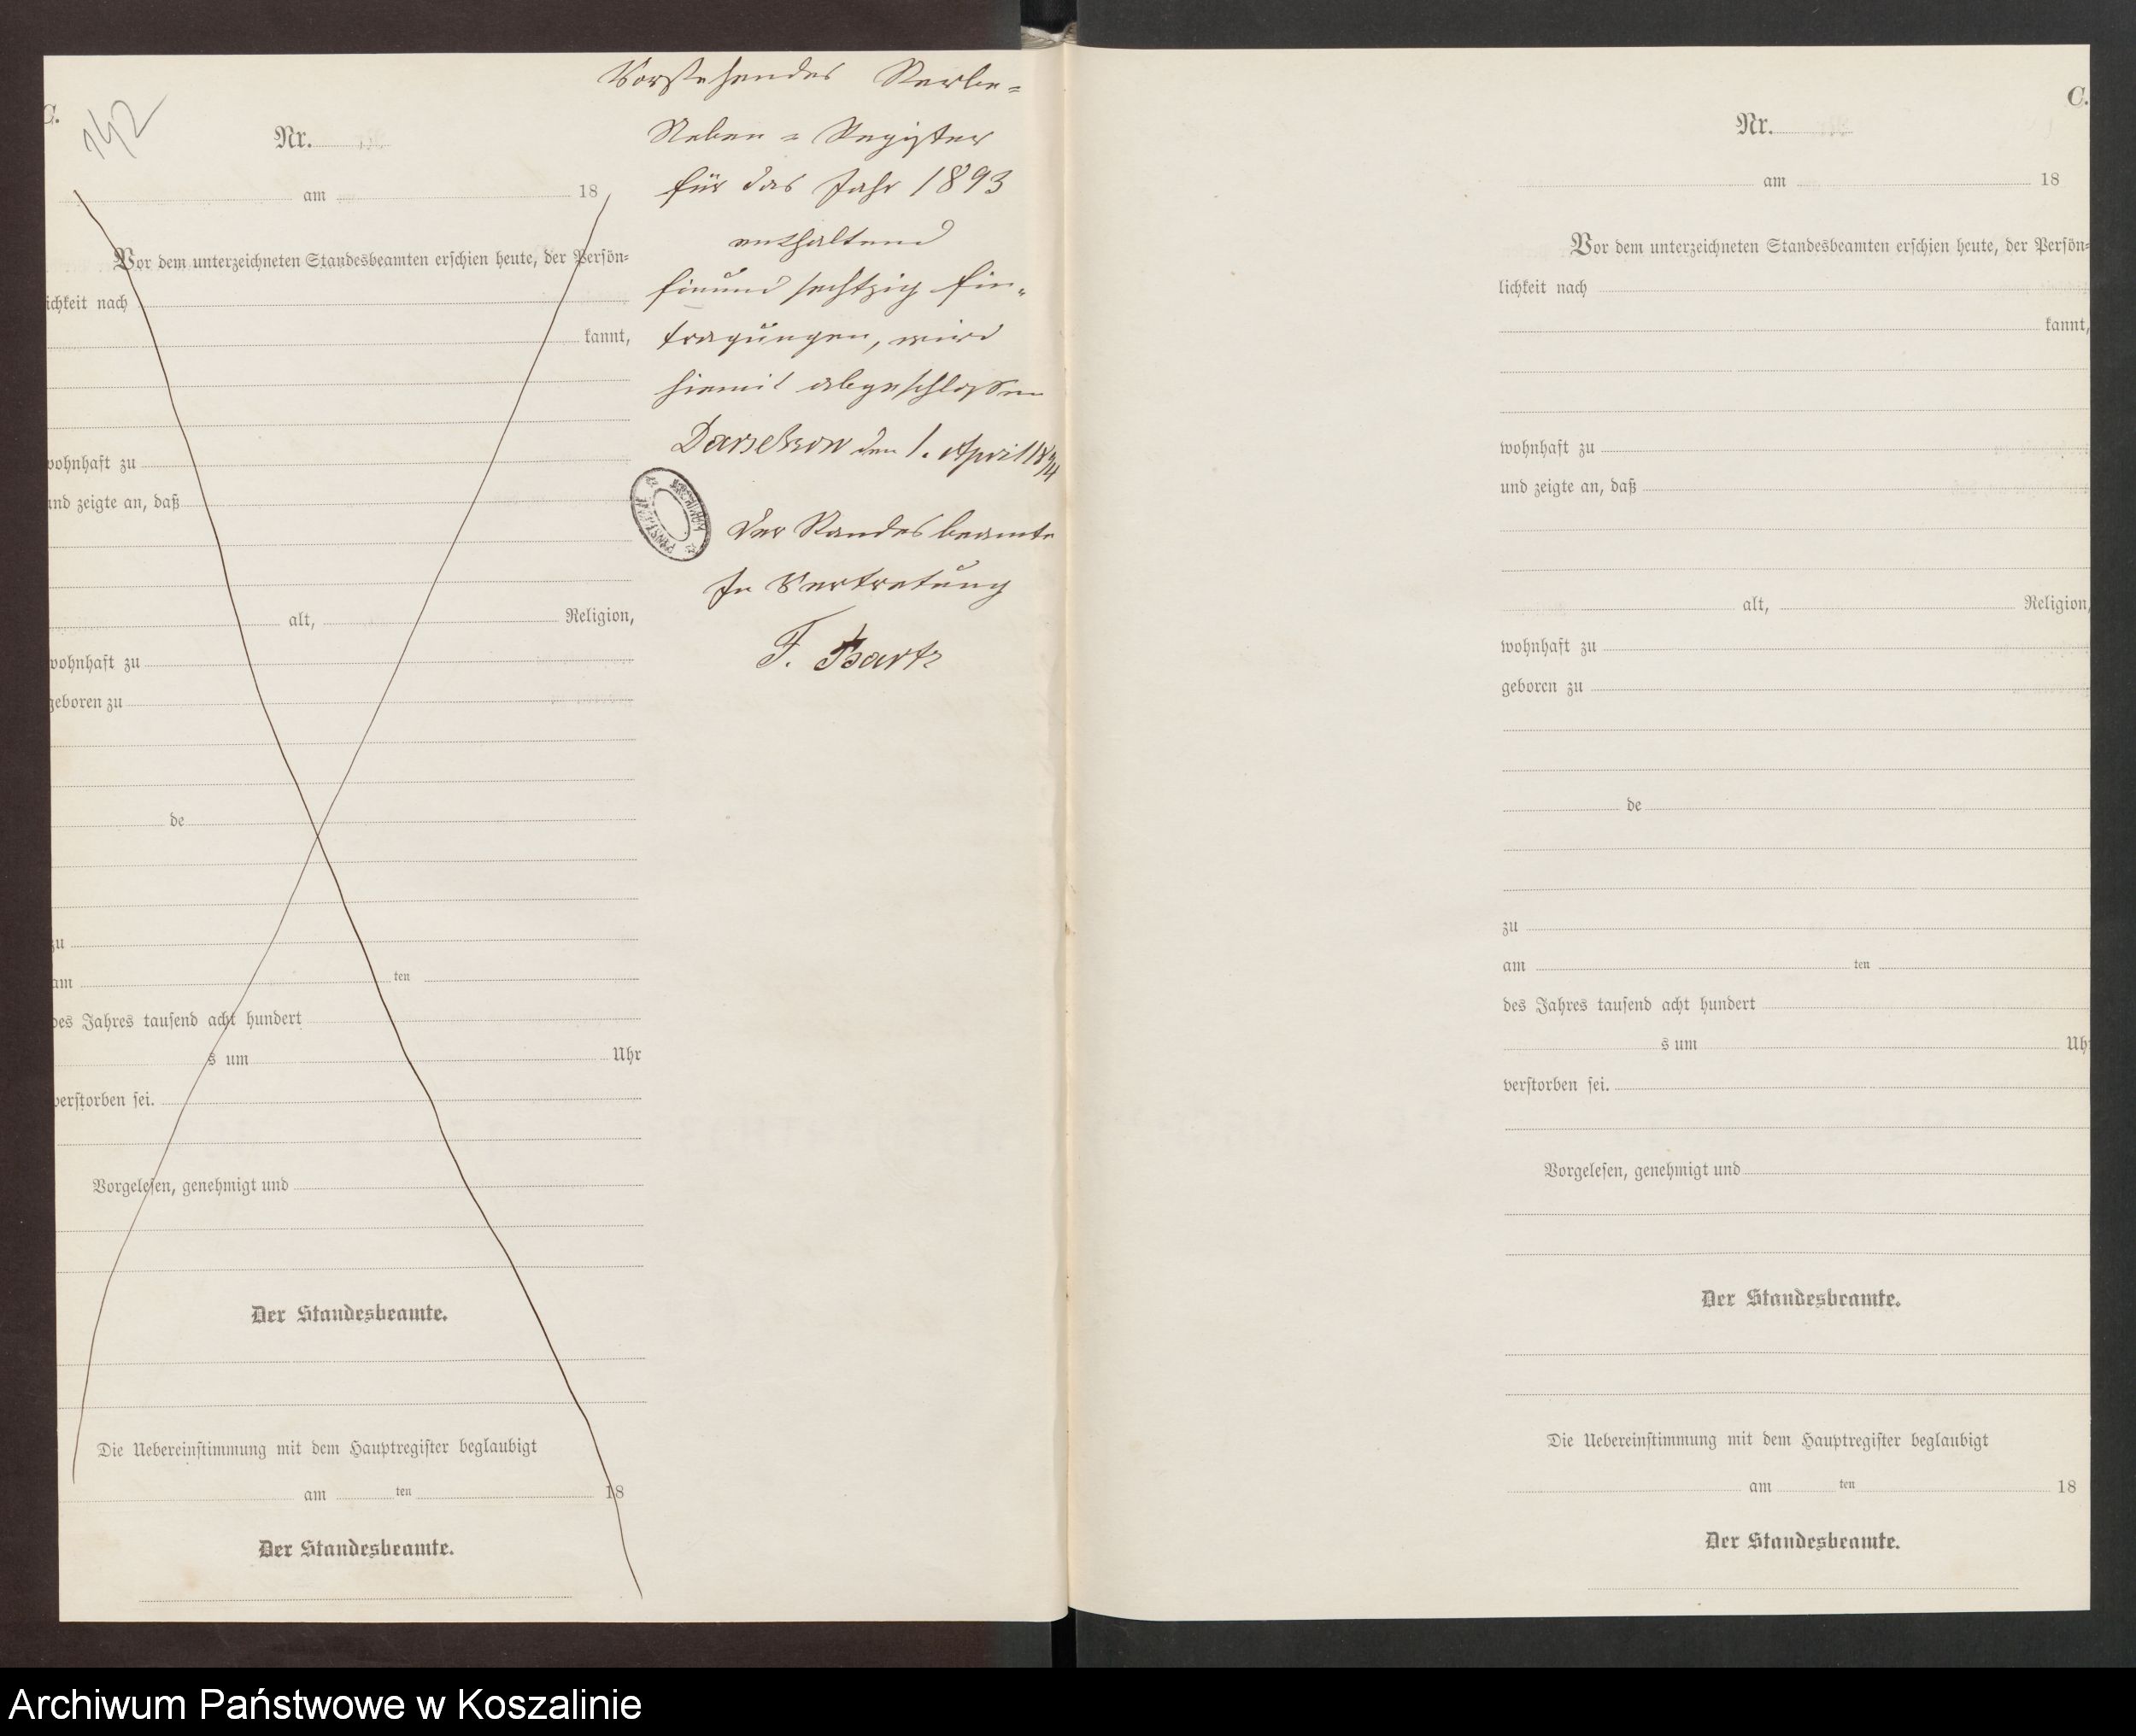 C.
142
Nr.
am 18
Vor dem unterzeichneten Standesbeamten erschien heute, der Persön-
ichkeit nach
kannt,
wohnhaft zu
und zeigte an, daß
alt, Religion,
wohnhaft zu
geboren zu
de
zu
am ten
des Jahres tausend acht hundert
s um Uhr
verstorben sei.
Vorgelesen, genehmigt und
Der Standesbeamte.
Die Uebereinstimmung mit dem Hauptregister beglaubigt
am ten 18
Der Standesbeamte.
Vorstehendes Sterbe=
Neben = Register
für das Jahr 1893
enthaltend
einund sechtzig Ein-
tragungen, wird
hiermit abgeschlossen
den 1. April
Der Standesbeamte
In Vertretung
F. Bartz
C.
Nr.
am 18
Vor dem unterzeichneten Standesbeamten erschien heute, der Persön-
lichkeit nach
kannt,
wohnhaft zu
und zeigte an, daß
alt, Religion,
wohnhaft zu
geboren zu
de
zu
am ten
des Jahres tausend acht hundert
s um Uh
verstorben sei.
Vorgelesen, genehmigt und
Der Standesbeamte.
Die Uebereinstimmung mit dem Hauptregister beglaubigt
am ten 18
Der Standesbeamte.
Archiwum Państwowe w Koszalinie